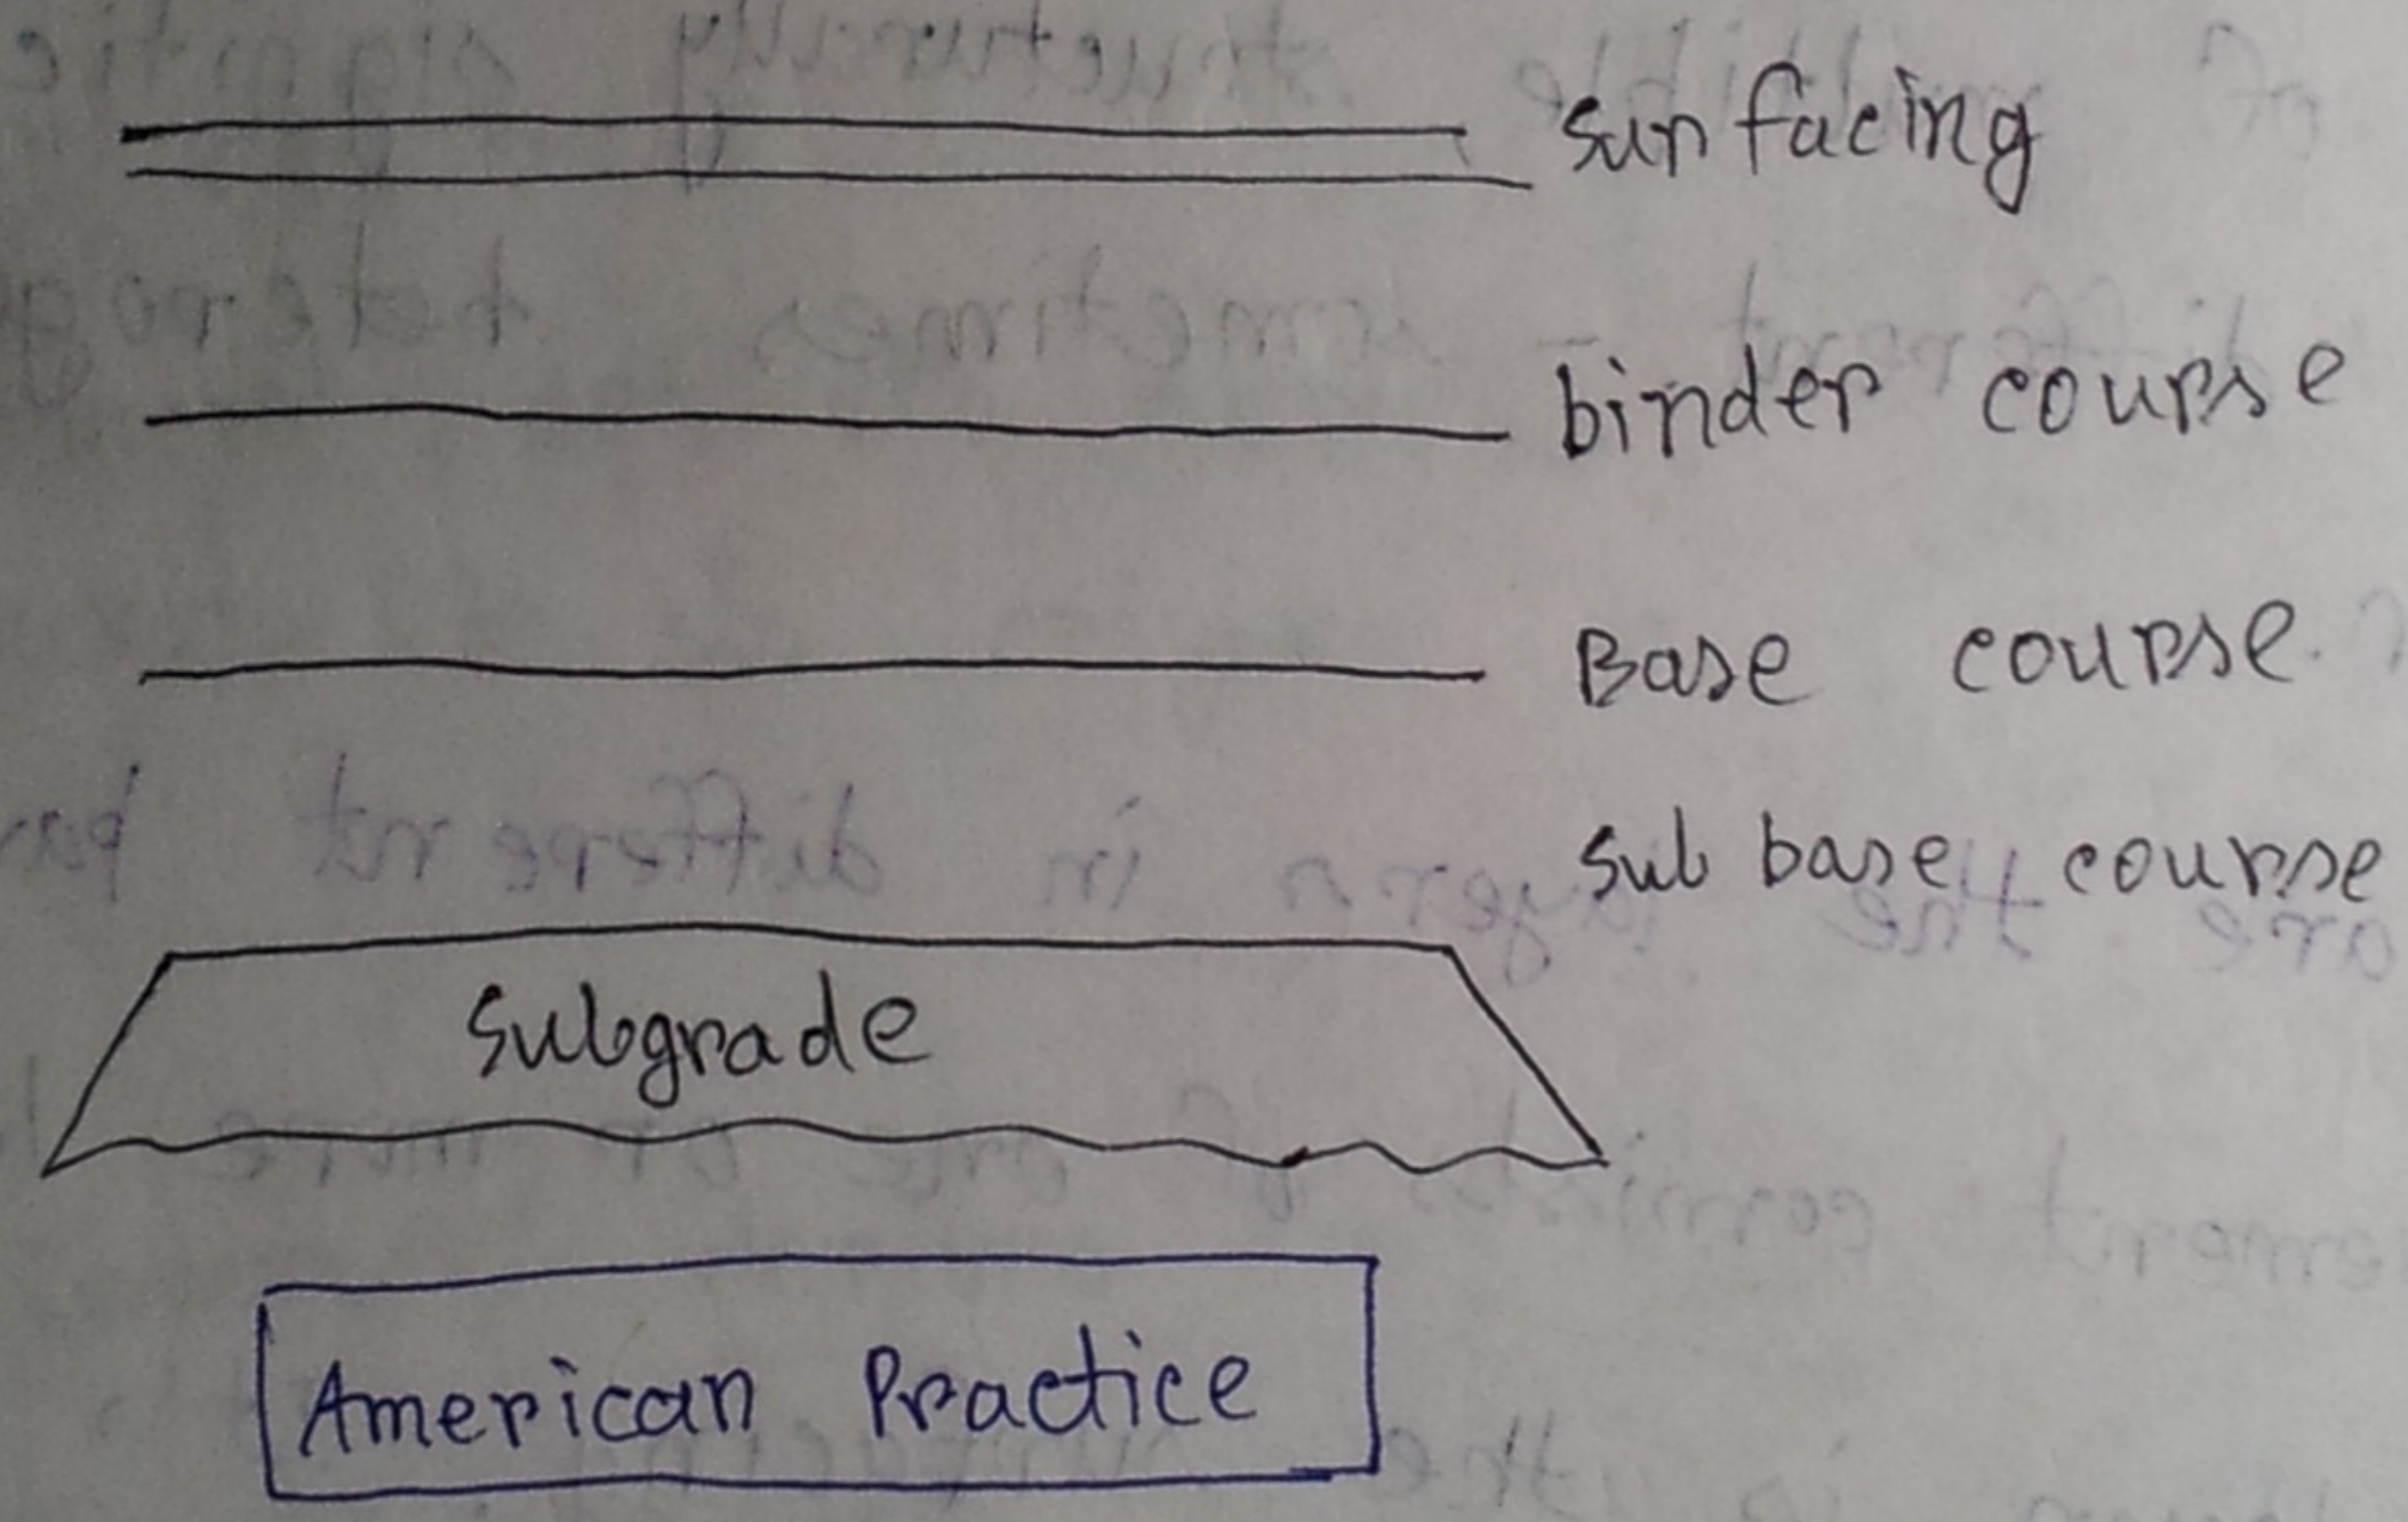 surfacing
binder course
Base course
sub base course
subgrade
American Practice